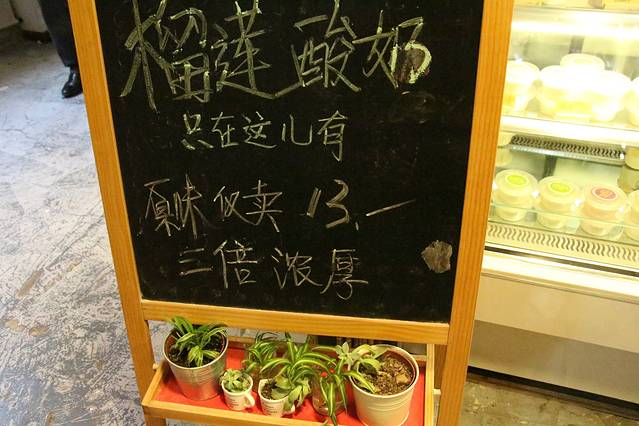 榴莲酸奶
只在这儿有
原味仅卖 13.一
三倍浓厚